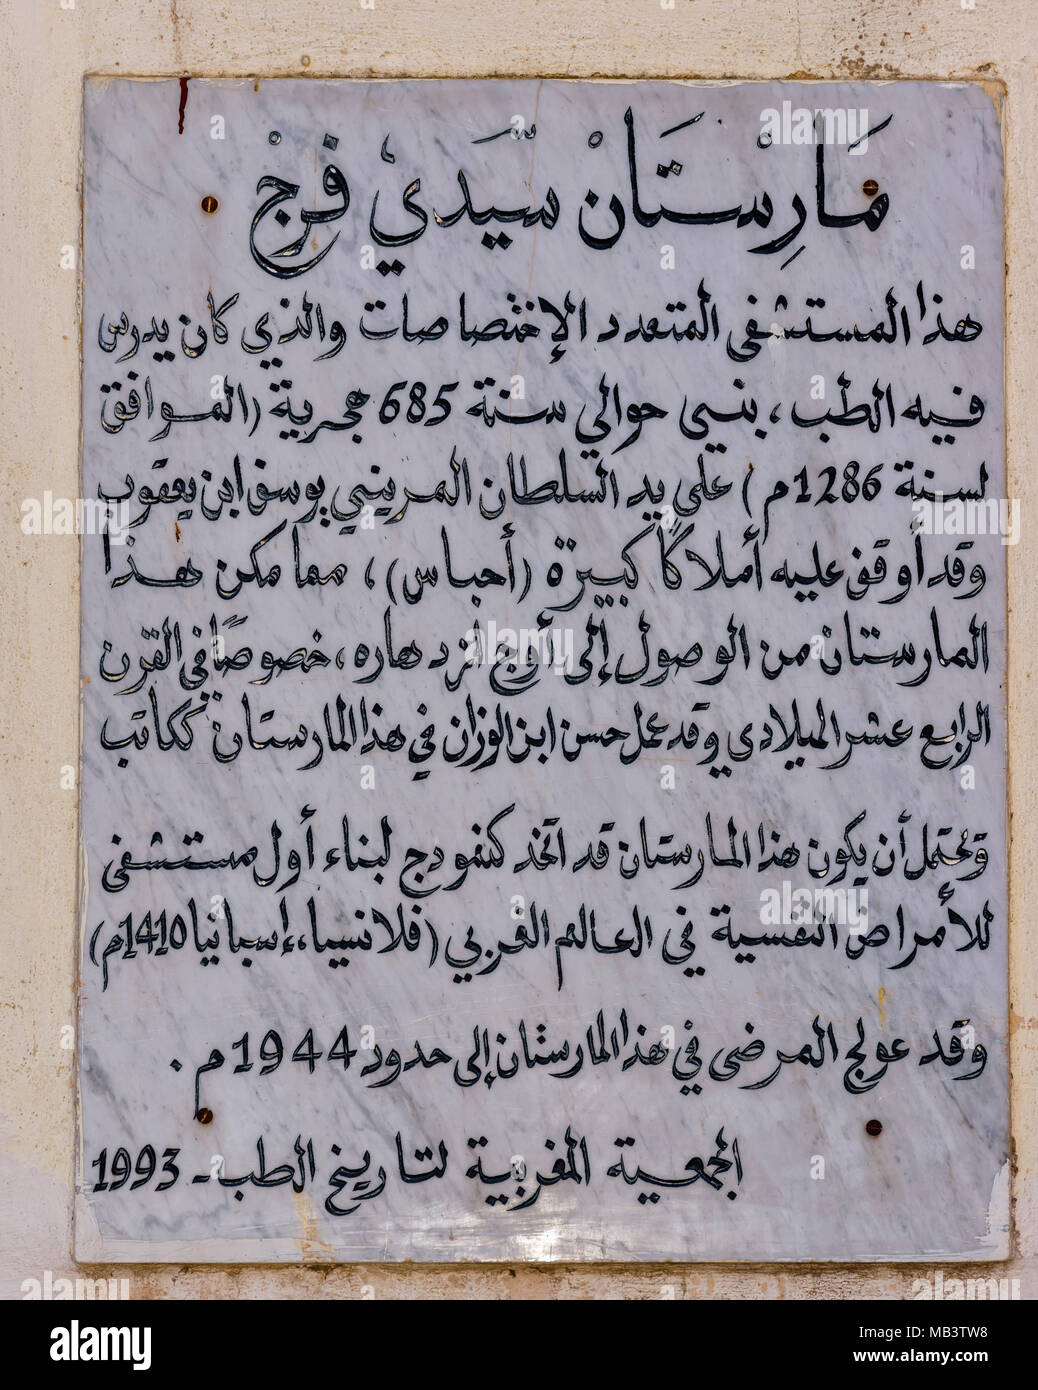 مَارِسْتَانْ سَيِّدِي فَرَجْ
هذا المستشفى المتعدد الإختصاصات والذي كان يدرس
فيه الطب، بني حوالي سنة 685 هجرية (الموافق
لسنة 1286م) على يد السلطان المريني يوسف ابن يعقوب
وقد أوقف عليه أملاكًا كبيرة (أحباس)، مما مكن هذا
المارستان من الوصول إلى أوج ازدهاره، خصوصًا في القرن
الرابع عشر الميلادي وقد عمل حسن ابن الوزان في هذا المارستان ككاتب
ويحتمل أن يكون هذا المارستان قد اتخذ كنمودج لبناء أول مستشفى
للأمراض النفسية في العالم الغربي (فلانسيا، إسبانيا 1410م)
وقد عولج المرضى في هذا المارستان إلى حدود 1944م.
الجمعية المغربية لتاريخ الطب - 1993
alamy
Image ID: MB3TW8
www.alamy.com